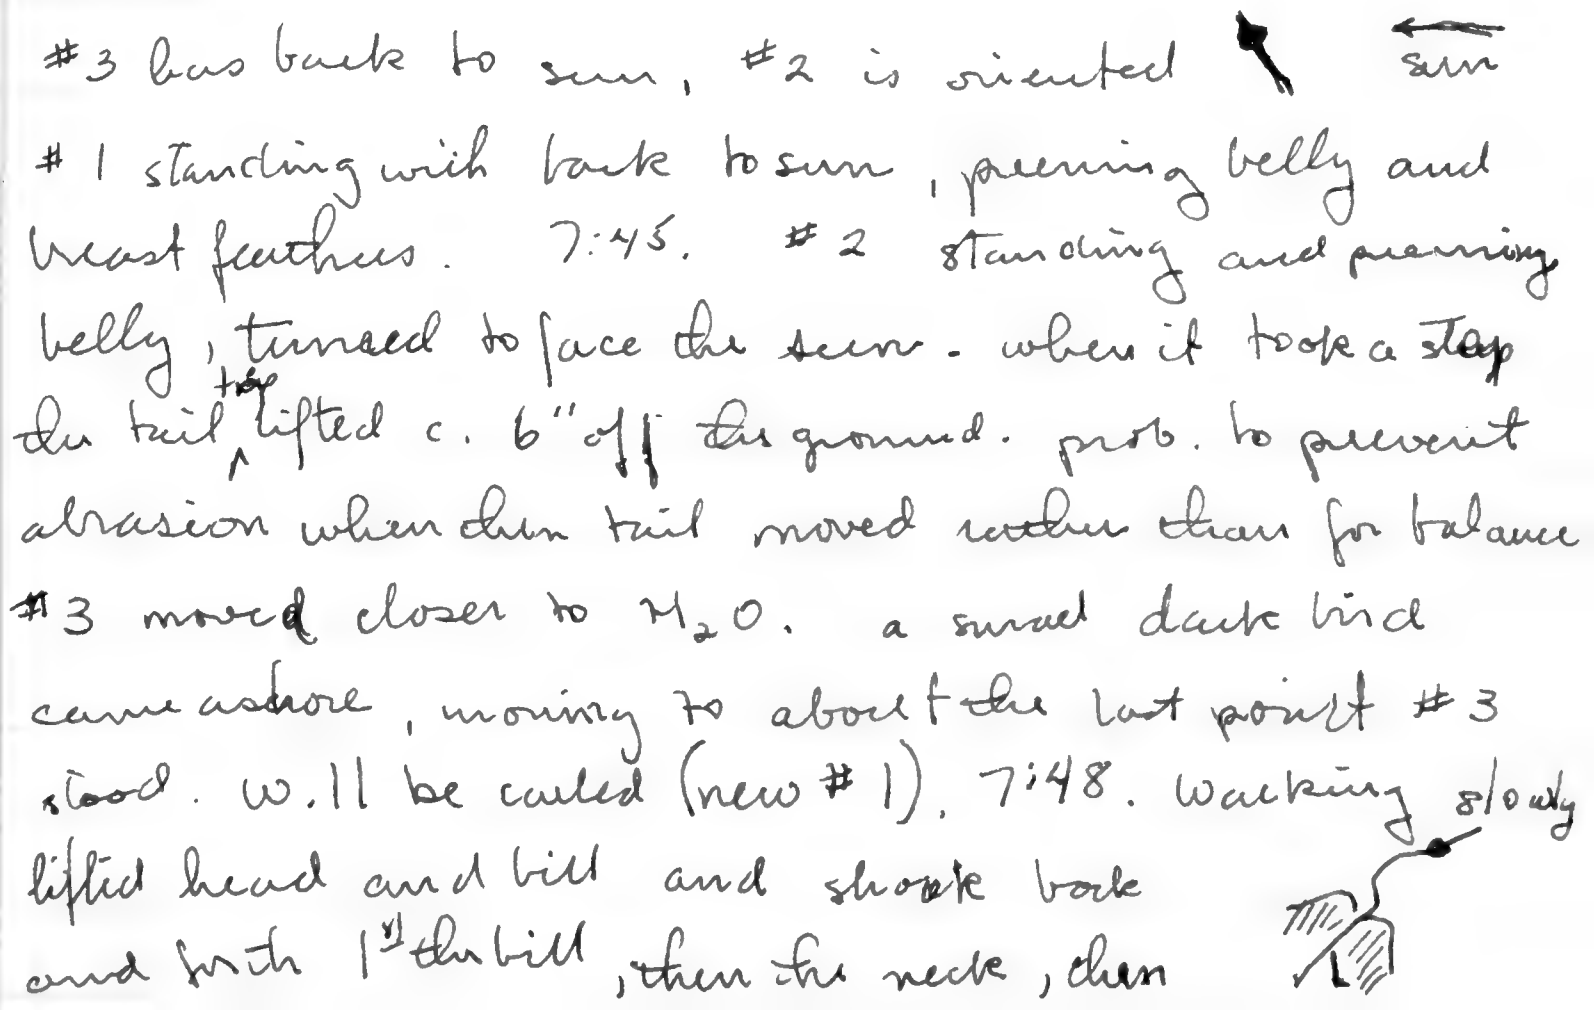 #3 has back to sun, #2 is oriented sun
#1 standing with back to sun, preening belly and
breast feathers. 7:45. #2 standing and preening
belly, turned to face the sun. when it took a step
the tail tip lifted c. 6" off the ground. prob. to prevent
abrasion when then tail moved rather than for balance
#3 moved closer to H2O. a small dark bird
came ashore, moving to about the last point #3
stood. will be called (new #1). 7:48. Walking slowly
lifted head and bill and shook back
and forth 1st the bill, then the neck, then